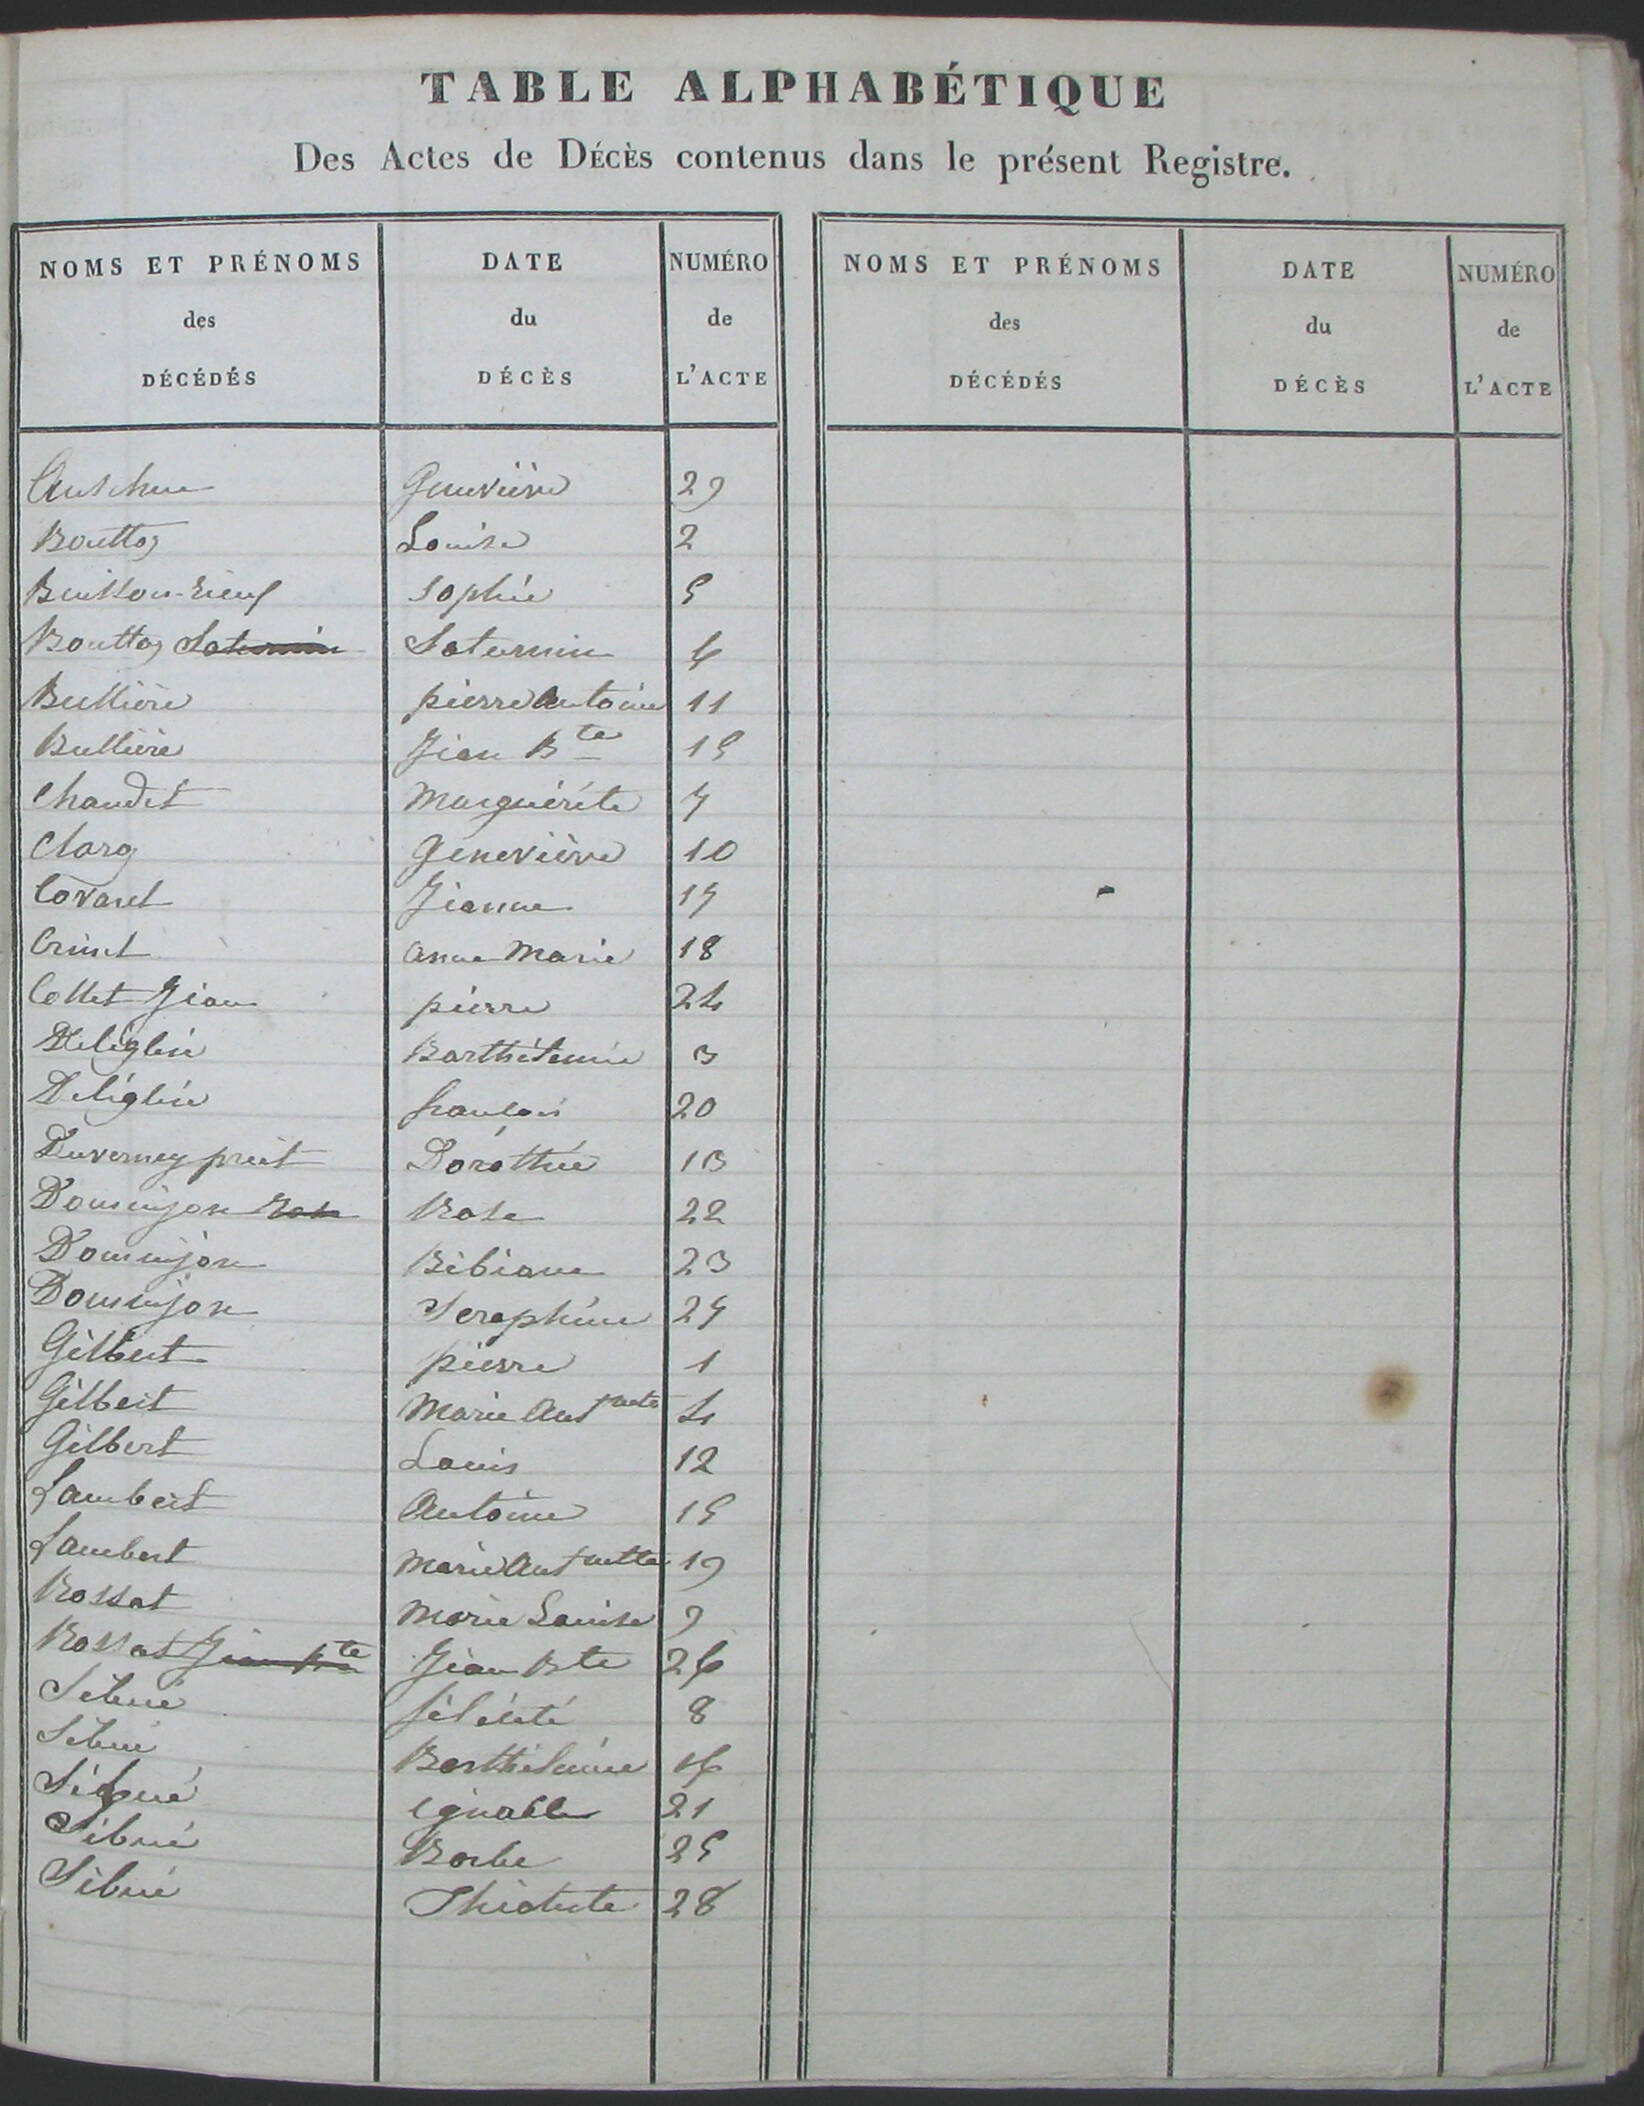 TABLE ALPHABÉTIQUE
Des Actes de DÉCÈS contenus dans le présent Registre.
NOMS ET PRÉNOMS des DÉCÉDÉS | DATE du DÉCÈS | NUMÉRO de L'ACTE | NOMS ET PRÉNOMS des DÉCÉDÉS | DATE du DÉCÈS | NUMÉRO de L'ACTE
Genevière 29
Bouttaz Louise 2
Buisson-rieuf Sophie 5
Bouttaz Saturnin Saturnin 6
Bullière pierre Antoine 11
Bullière Jean Bte 15
Chaudet Marguérite 7
Claraz Geneviève 10
Covarel Jeanne 17
Crinel Anne Marie 18
Collet Jean pierre 24
Déléglise Barthélemie 3
Déléglise françois 20
Duverney pret Dorothée 13
Dominjon Rose Rose 22
Dominjon Bibiane 23
Dominjon Seraphine 27
Gilbert pierre 1
Gilbert Marie Antnette 4
Gilbert Louis 12
Lambert Antoine 15
Lambert Marie Antnette 19
Rossat Marie Louise 9
Rossat Jean Bte Jean Bte 26
Sibué félicité 8
Sibué Barthélemie 16
Sibué ignace 21
Sibué Barbe 25
Sibué Théodute 28